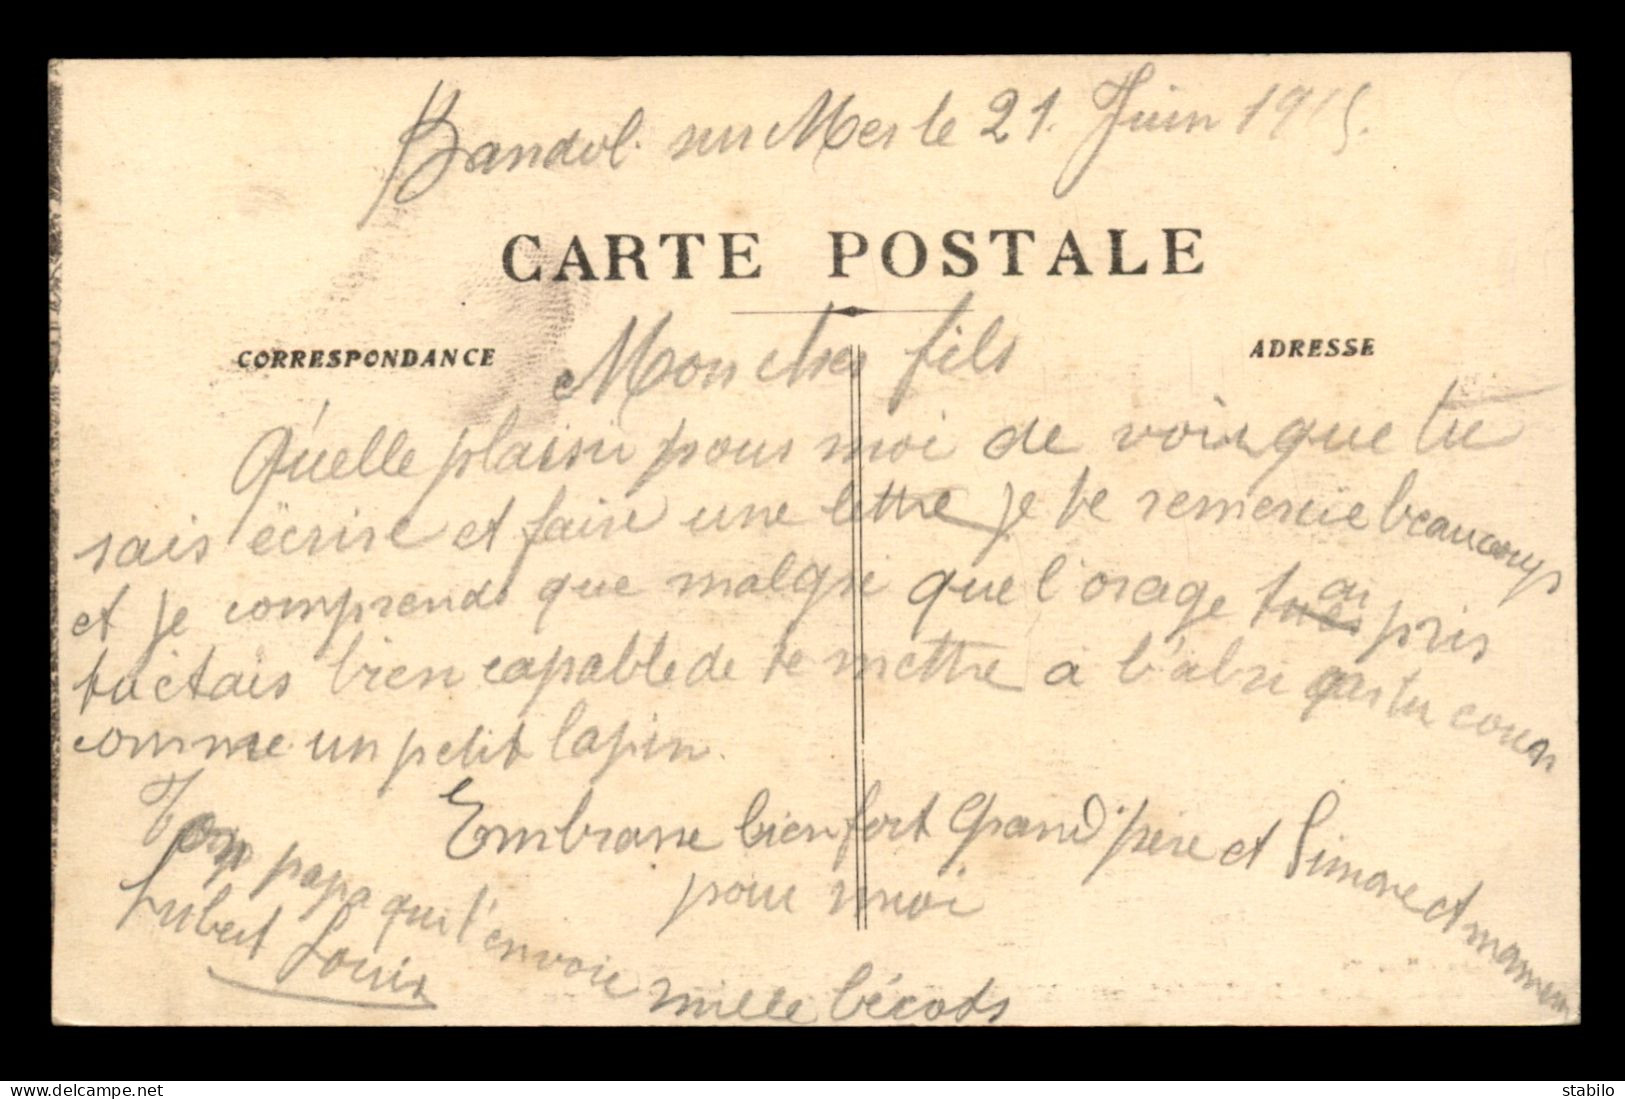 Bandol. sur Mer le 21. Juin 1915.
CARTE POSTALE
CORRESPONDANCE
ADRESSE
Mon cher fils
Quelle plaisir pour moi de voir que tu
sais écrire et faire une lettre je te remercie beaucoup
et je comprends que malgré que l'orage t'ai pris
tu étais bien capable de te mettre a l'abri car tu cours
comme un petit lapin.
Embrasse bien fort Grand père et Simone et maman
pour moi
Ton papa qui t'envoie mille bécots
Hubert Louis
www.delcampe.net
stabilo